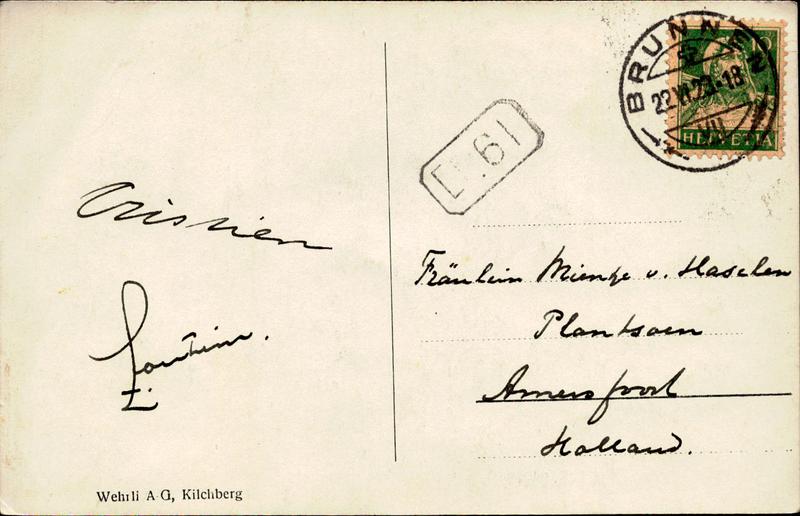 BRUNNEN
22.VI.23.-18
VII
10
HELVETIA
61
Fräulein Mientje v. Hasselen
Plantsoen
Amersfoort
Holland.
Wehrli A G, Kilchberg